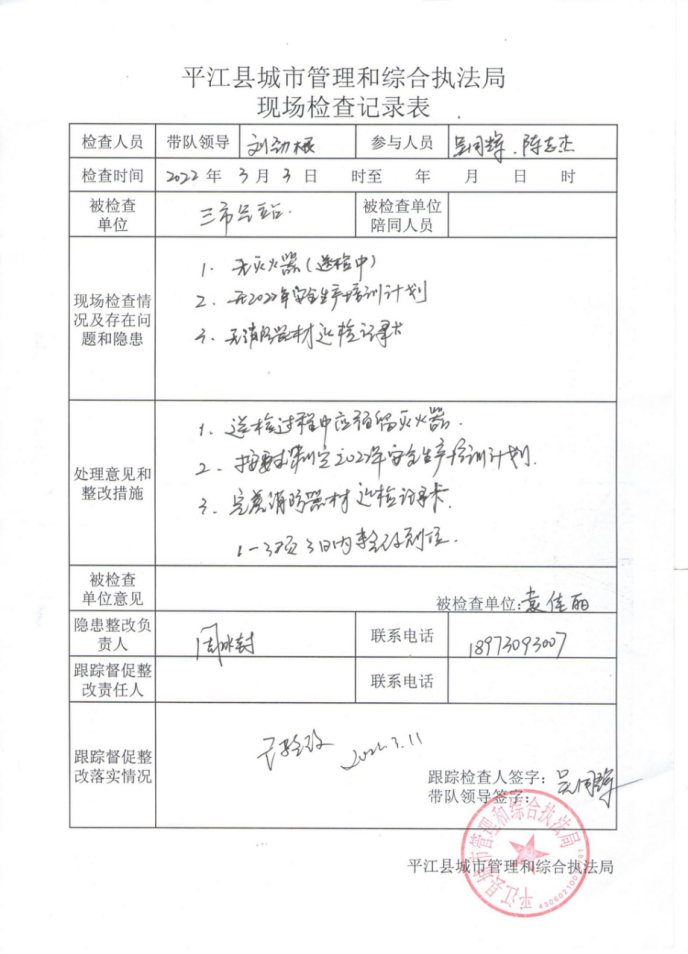 平江县城市管理和综合执法局
现场检查记录表
检查人员 带队领导 刘劲根 参与人员 吴同辉、陈志杰
检查时间 2022年 3月3日 时至 年 月 日 时
被检查单位 三市 被检查单位陪同人员
现场检查情况及存在问题和隐患
1. 无灭火器(送检中)
2. 无2022年安全生产培训计划
3. 无消防器材巡检记录卡
处理意见和整改措施
1. 送检过程中应预留灭火器.
2. 按要求制定2022年安全生产培训计划.
3. 完善消防器材巡检记录卡.
1-3项3日内整改到位.
被检查单位意见
被检查单位:袁佳丽
隐患整改负责人 周冰封 联系电话 18973093007
跟踪督促整改责任人 联系电话
跟踪督促整改落实情况
已整改 2022.3.11
跟踪检查人签字:吴同辉
带队领导签字:
平江县城市管理和综合执法局
平江县城市管理和综合执法局